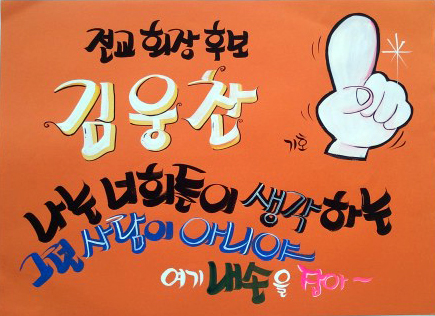 전교 회장 후보
김웅찬
기호
나는 너희들이 생각하는
그런 사람이 아니야~
여기 내손을 잡아~